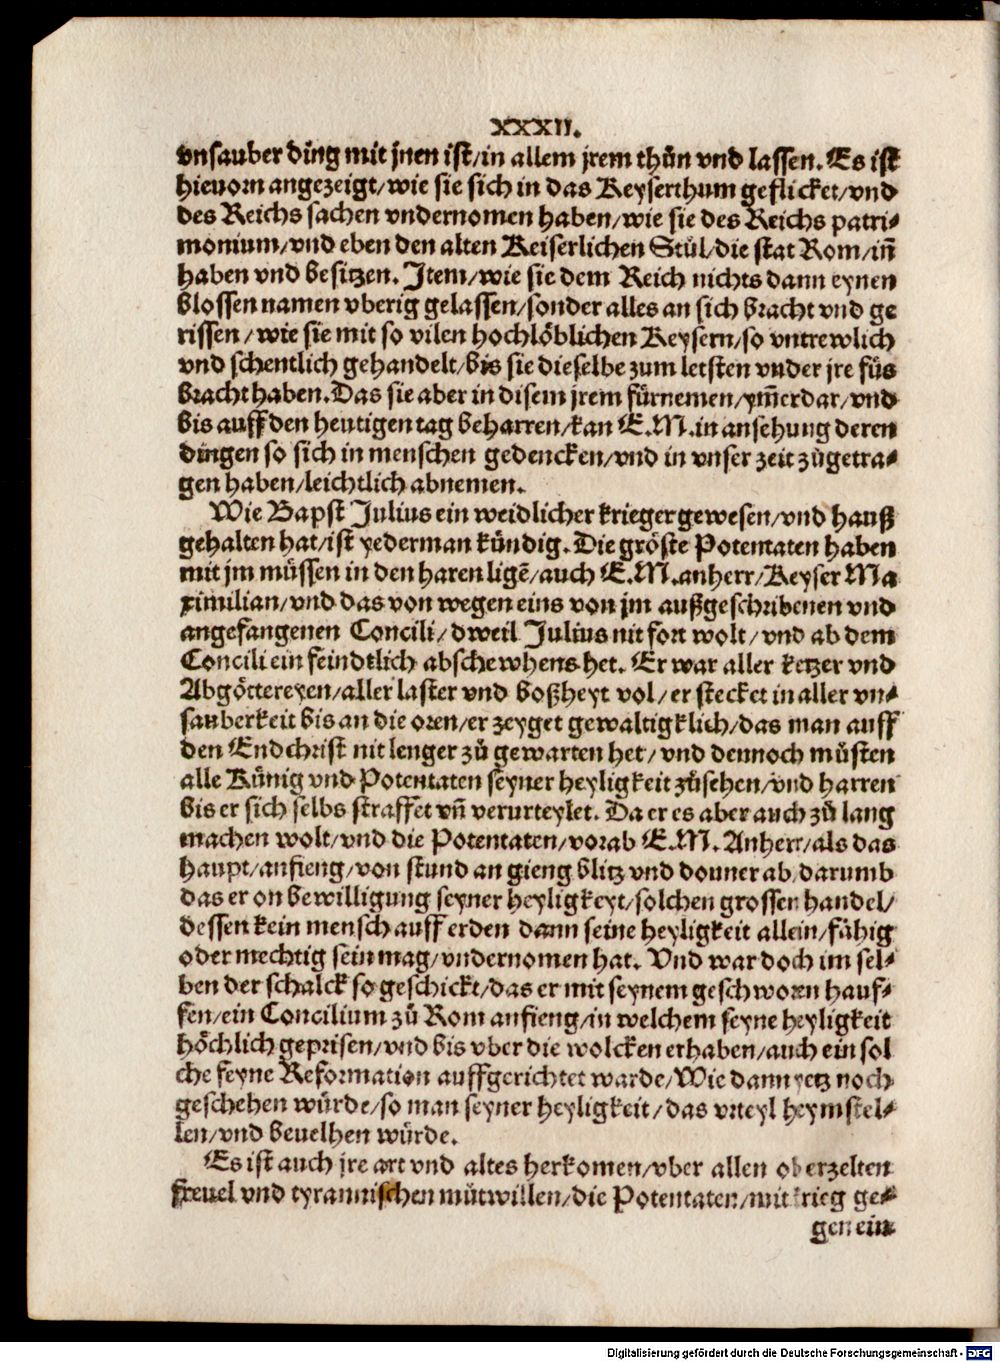 XXXII.
vnsauber ding mit jnen ist/in allem jrem thůn vnd lassen. Es ist
hieuorn angezeigt/wie sie sich in das Keyserthum geflicket/vnd
des Reichs sachen vndernomen haben/wie sie des Reichs patri-
monium/vnd eben den alten Keiserlichen Stůl/die stat Rom/iñ
haben vnd besitzen. Item/wie sie dem Reich nichts dann eynen
blossen namen vberig gelassen/sonder alles an sich bracht vnd ge
rissen/wie sie mit so vilen hochlöblichen Keysern/so vntrewlich
vnd schentlich gehandelt/bis sie dieselbe zum letsten vnder jre fůs
bracht haben. Das sie aber in disem jrem fürnemen/ym̃erdar/vnd
bis auff den heutigen tag beharren/kan E.M.in ansehung deren
dingen so sich in menschen gedencken/vnd in vnser zeit zůgetra-
gen haben/leichtlich abnemen.
Wie Bapst Julius ein weidlicher krieger gewesen/vnd hauß
gehalten hat/ist yederman kündig. Die gröste Potentaten haben
mit jm müssen in den haren ligẽ/auch E.M.anherr/Keyser Ma
ximilian/vnd das von wegen eins von jm außgeschribenen vnd
angefangenen Concili/dweil Julius nit fort wolt/vnd ab dem
Concili ein feindtlich abschewhens het. Er war aller ketzer vnd
Abgöttereyen/aller laster vnd boßheyt vol/er stecket in aller vn-
sauberkeit bis an die oren/er zeyget gewaltigklich/das man auff
den Endchrist nit lenger zů gewarten het/vnd dennoch můsten
alle Künig vnd Potentaten seyner heyligkeit zůsehen/vnd harren
bis er sich selbs straffet vñ verurteylet. Da er es aber auch zů lang
machen wolt/vnd die Potentaten/vorab E.M. Anherr/als das
haupt/anfieng/von stund an gieng blitz vnd donner ab/darumb
das er on bewilligung seyner heyligkeyt/solchen grossen handel/
dessen kein mensch auff erden dann seine heyligkeit allein/fähig
oder mechtig sein mag/vndernomen hat. Vnd war doch im sel-
ben der schalck so geschickt/das er mit seynem geschworen hauf-
fen/ein Concilium zů Rom anfieng/in welchem seyne heyligkeit
höchlich geprisen/vnd bis vber die wolcken erhaben/auch ein sol
che feyne Reformation auffgerichtet warde/Wie dann yetz noch
geschehen würde/so man seyner heyligkeit/das vrteyl heymstel-
len/vnd beuelhen würde.
Es ist auch jre art vnd altes herkomen/vber allen oberzelten
freuel vnd tyrannischen můtwillen/die Potentaten/mit krieg ge-
gen ein
Digitalisierung gefördert durch die Deutsche Forschungsgemeinschaft - DFG